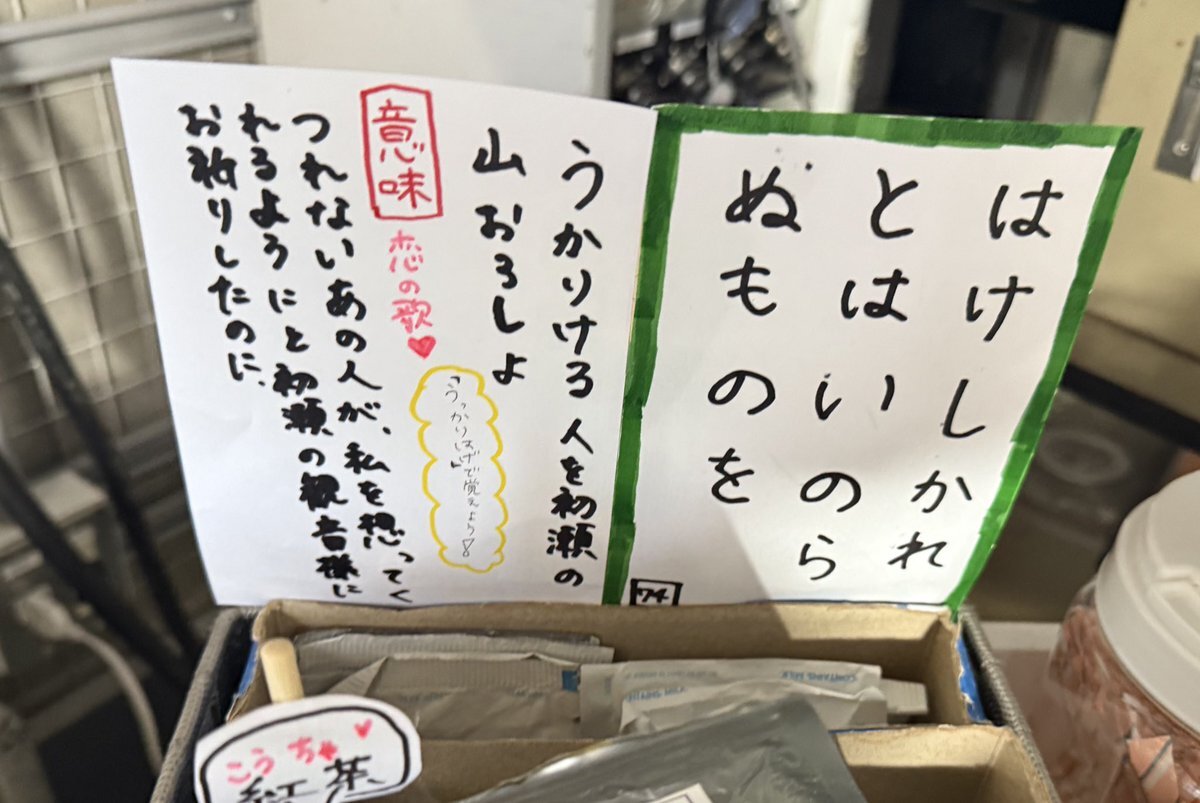 はけしかれ
とはいのら
ぬものを
74
うかりける人を初瀬の
山おろしよ
意味
恋の歌
「うっかりはげ」で覚えよう!
つれないあの人が、私を想ってく
れるようにと初瀬の観音様に
お祈りしたのに、
こうちゃ
紅茶
CONTAINS MILK